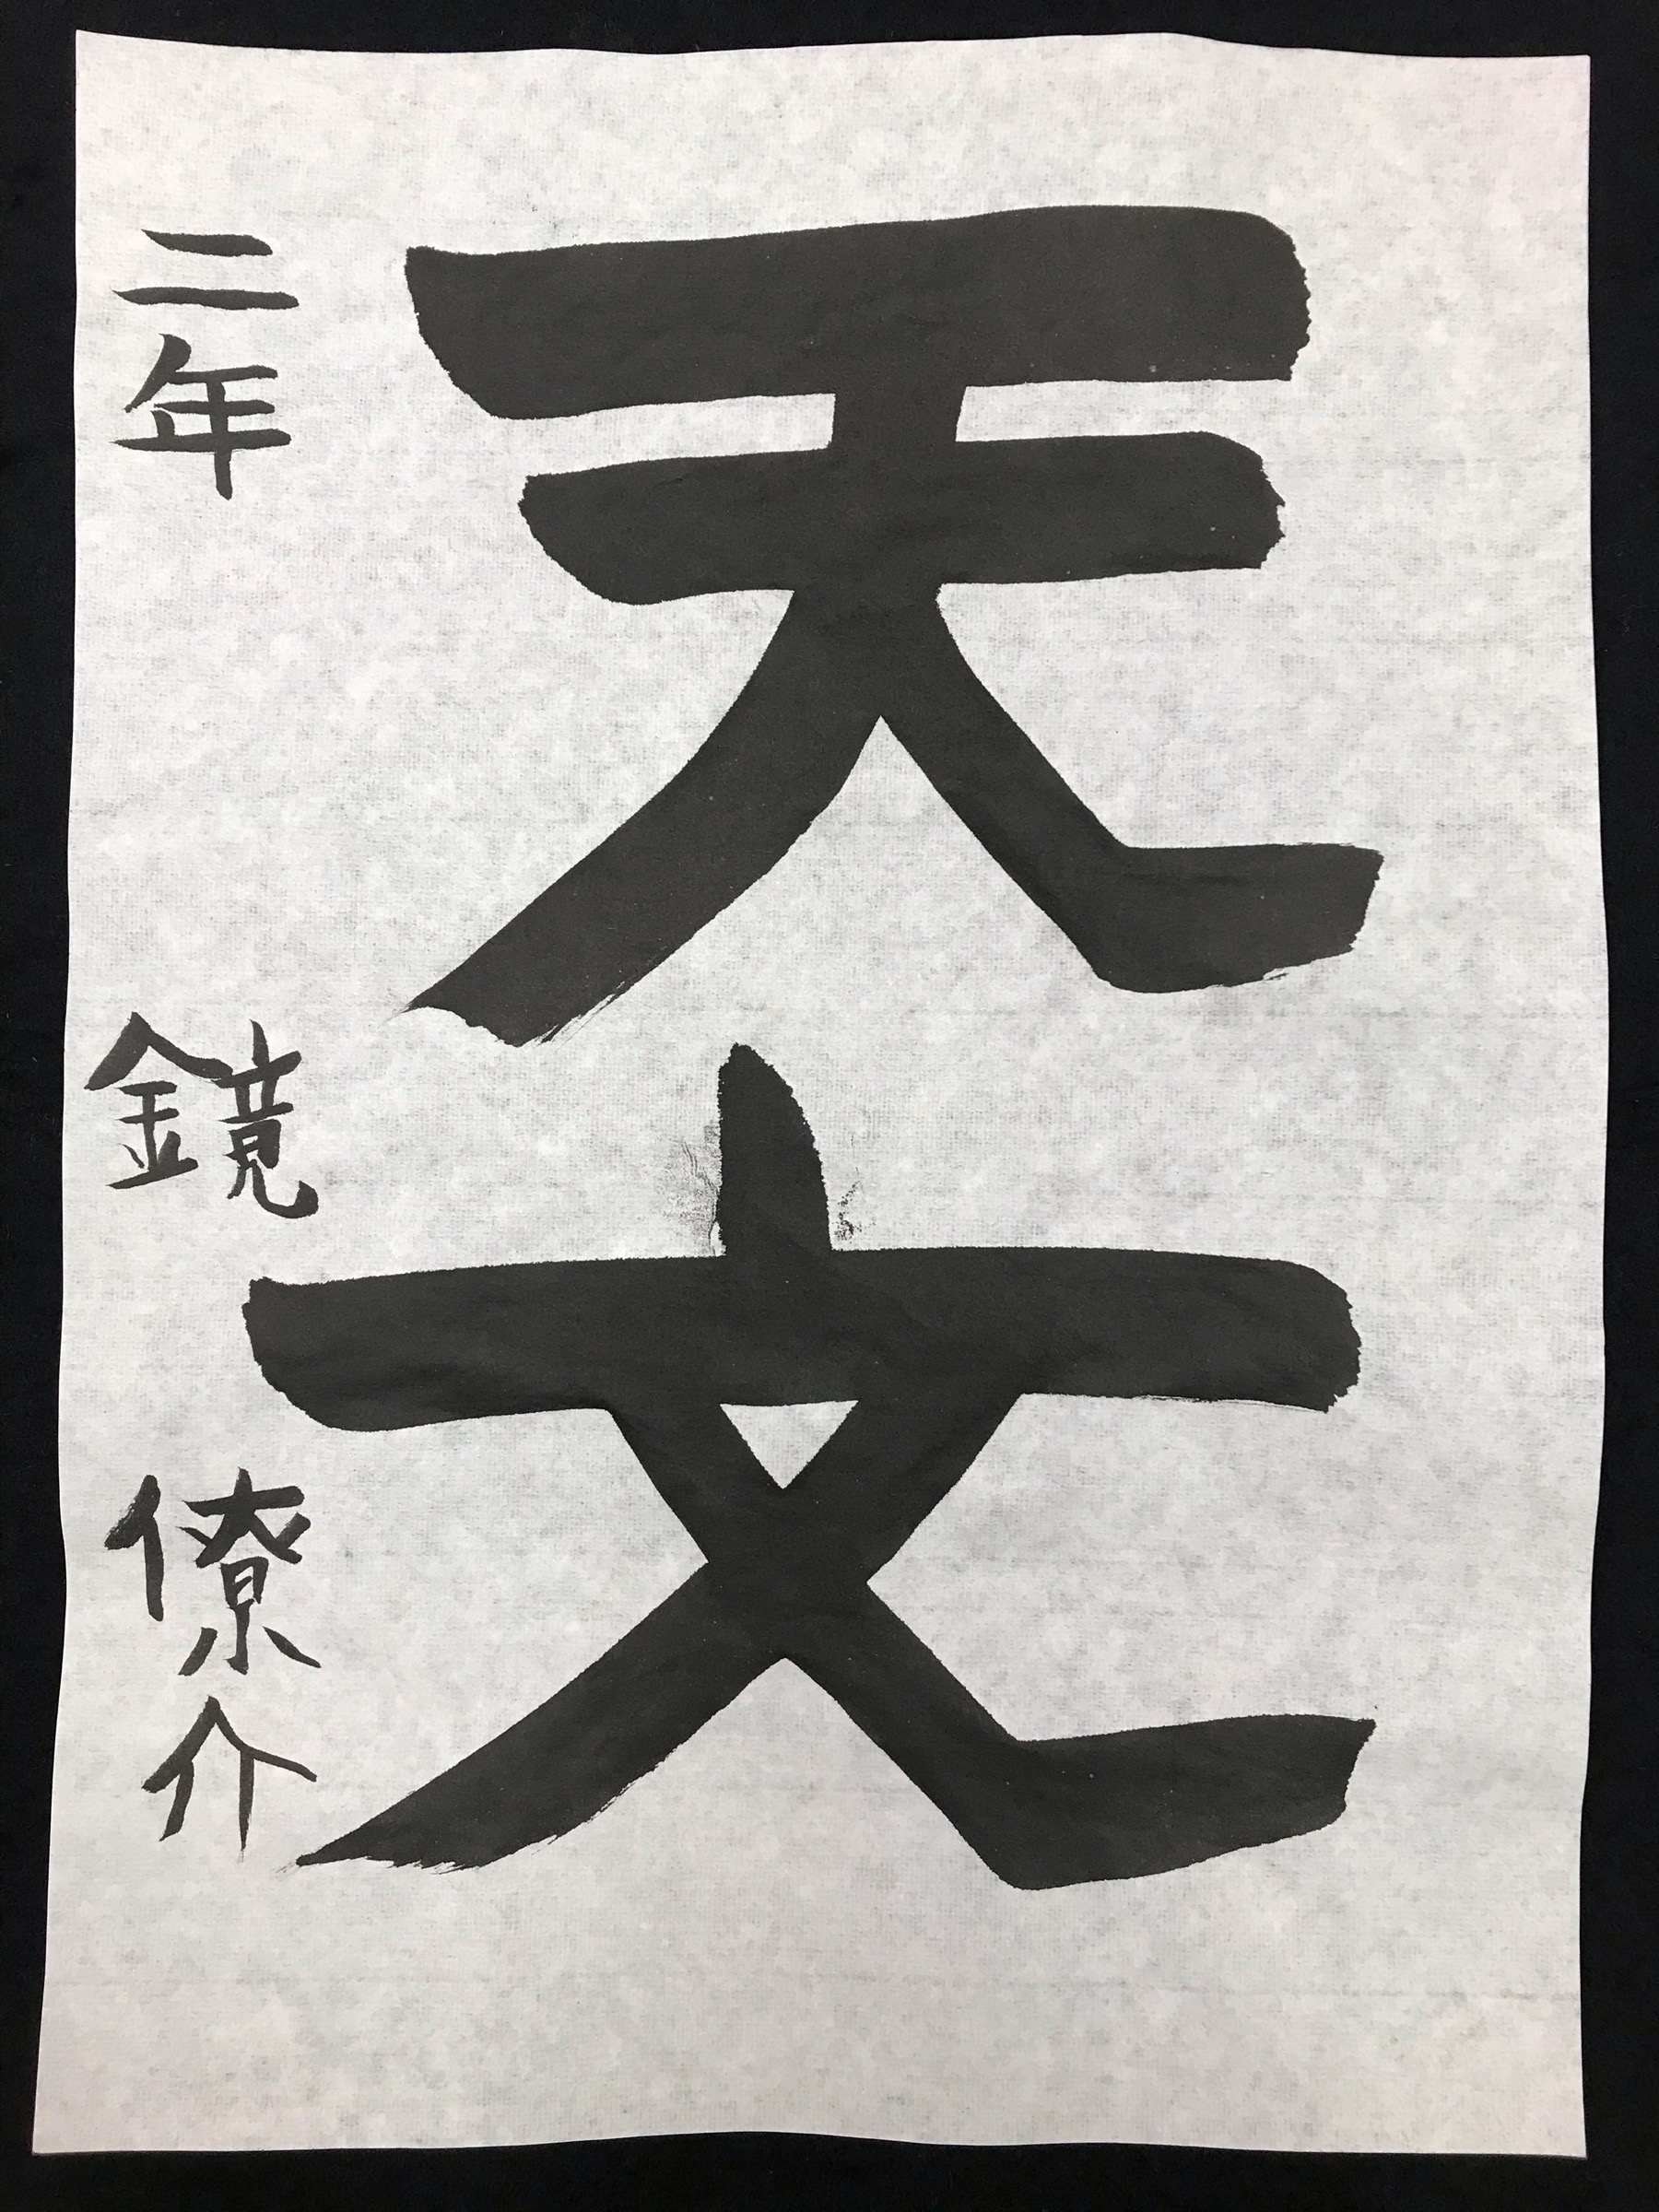 天文
二年 鏡 僚介